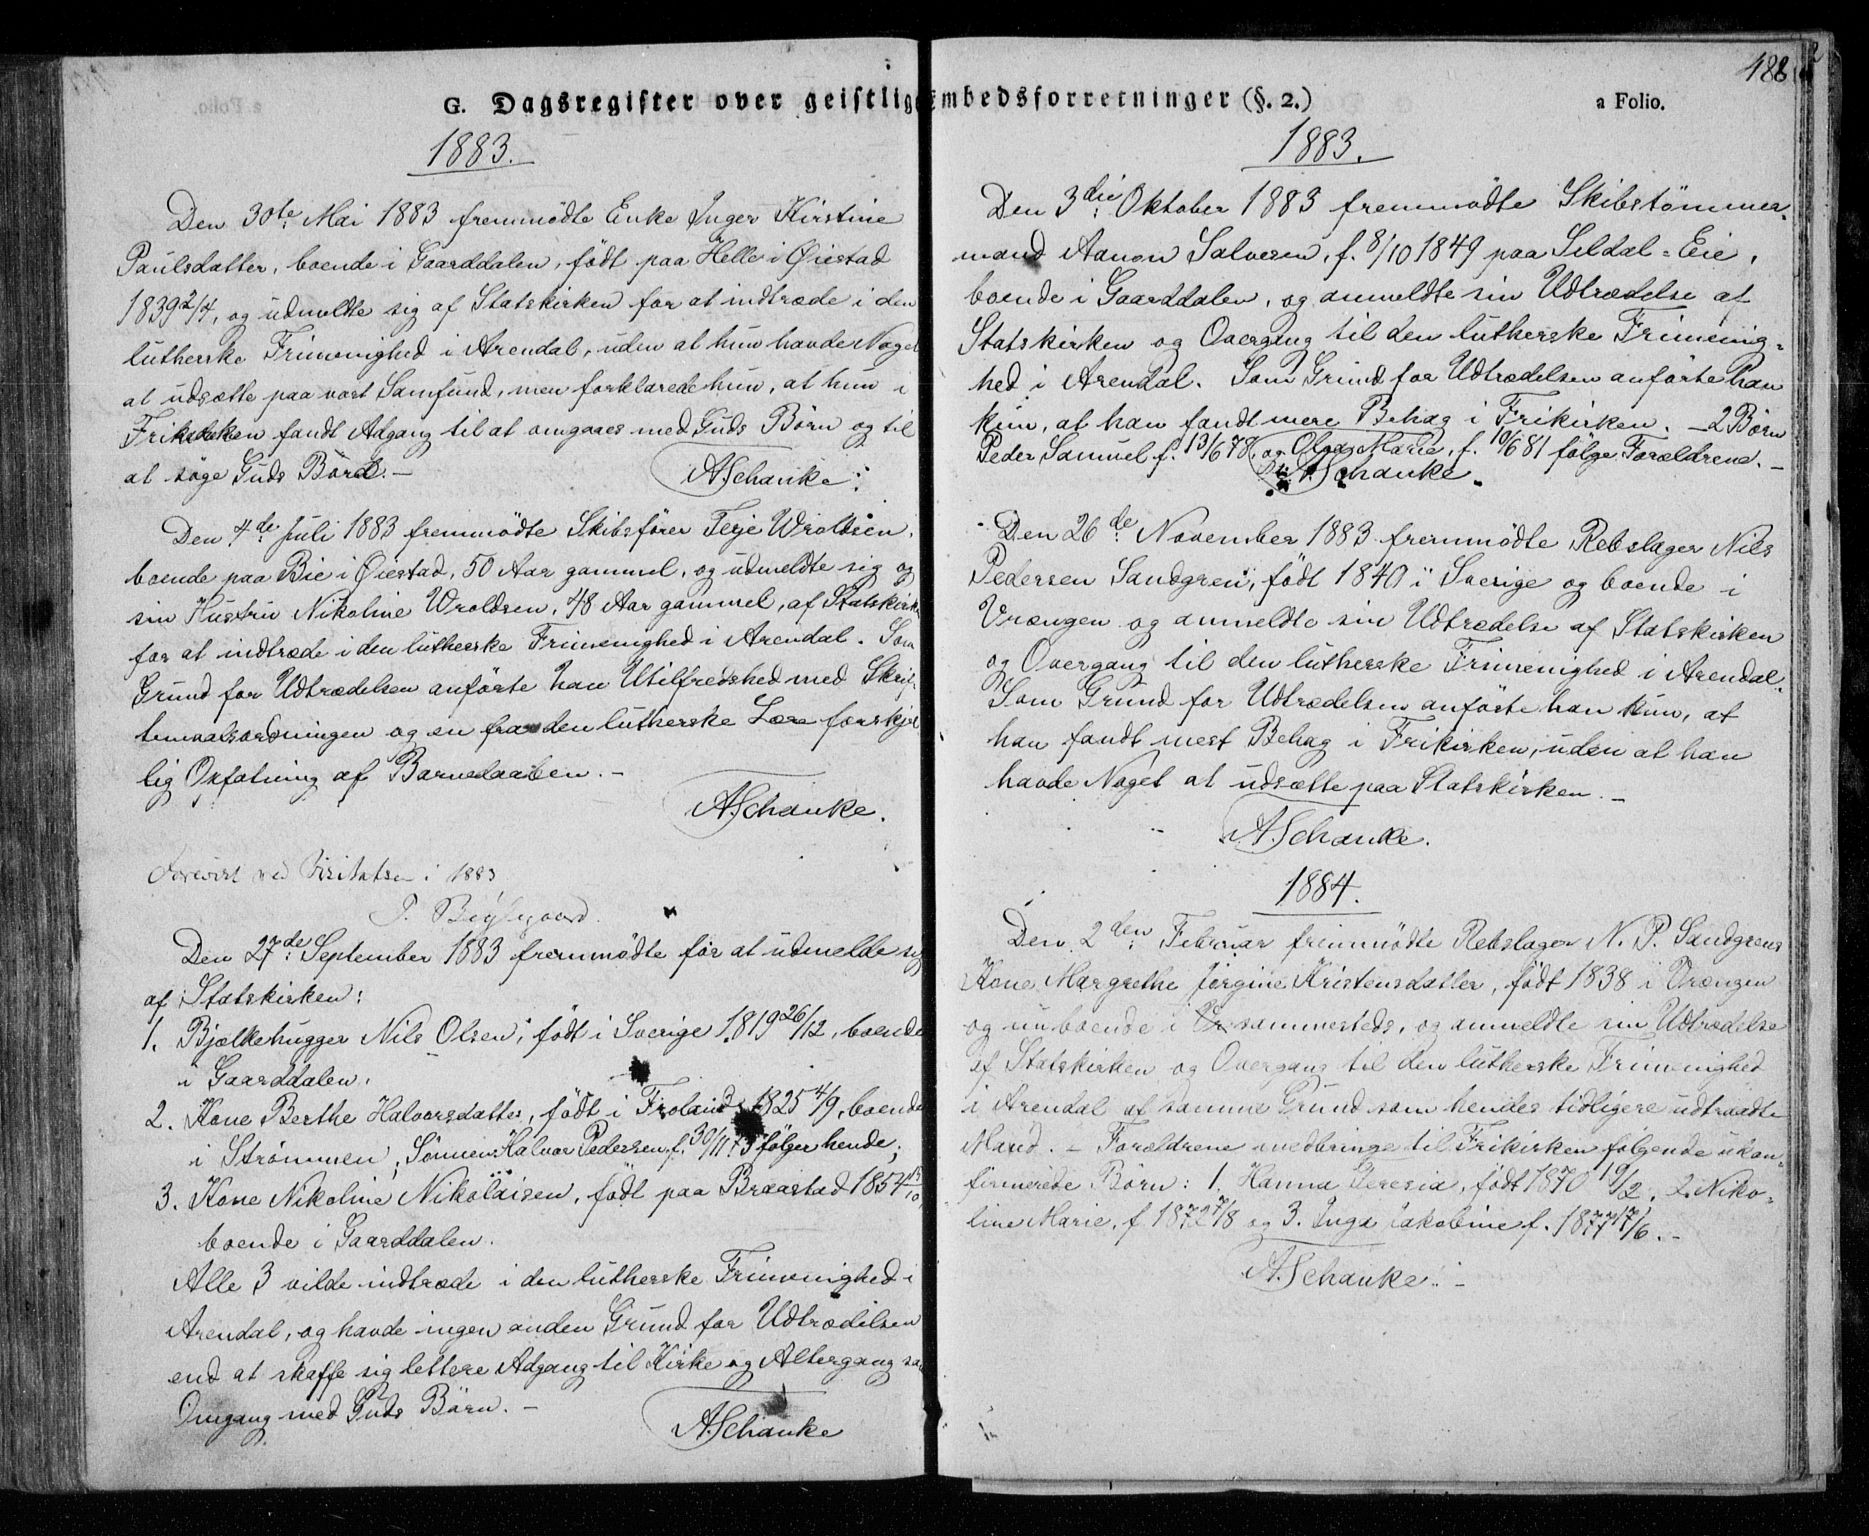 G. Dagsregister over geistlige Embedsforretninger (§. 2.)
a Folio.
188
1883.
Den 30te Mai 1883 fremmødte Enke Inger Kirstine
Paulsdatter, boende i Gaarddalen, født paa Helle i Øiestad
1839 2/4, og udmeldte sig af Statskirken for at indtræde i den
lutherske Frimenighed i Arendal, uden at hun havde Noget
at udsætte paa vort Samfund, men forklarede hun, at hun i
Frikirken fandt Adgang til at omgaaes med Guds Børn og til
at søge Guds Bord. –
A. Schanke.
Den 4de Juli 1883 fremmødte Skibsfører Terje Wroldsen,
boende paa Bie i Øiestad, 50 Aar gammel, og udmeldte sig og
sin Hustru Nikoline Wroldsen, 48 Aar gammel, af Statskirken
for at indtræde i den lutherske Frimenighed i Arendal. Som
Grund for Udtrædelsen anførte han Utilfredshed med Skrif-
temaalsordningen og en fra den lutherske Lære forskjel
lig Opfatning af Barnedaaben. –
A. Schanke.
Forevist ved Visitatsen i 1883
Den 27de September 1883 fremmødte for at udmelde sig
af Statskirken:
1. Bjælkehugger Nils Olsen, født i Sverige 1819 26/12, boende
i Gaarddalen.
2. Kone Berthe Halvorsdatter, født i Froland 1825 4/9, boende
i Strømmen; Sønnen Halvor Pedersen f. 30/11 73 følger hende;
3. Kone Nikoline Nikolaisen, født paa Braastad 1854
boende i Gaarddalen.
Alle 3 vilde indtræde i den lutherske Frimenighed i
Arendal, og havde ingen anden Grund for Udtrædelsen
end at skaffe sig lettere Adgang til Kirke og Altergang samt
Omgang med Guds Børn. –
A. Schanke
1883.
Den 3die Oktober 1883 fremmødte Skibstømmer-
mand Aanon Salvesen, f. 8/10 1849 paa Sildal-Eie,
boende i Gaarddalen, og anmeldte sin Udtrædelse af
Statskirken og Overgang til den lutherske Frimenig-
hed i Arendal. Som Grund for Udtrædelsen anførte han
kun, at han fandt mere Behag i Frikirken. – 2 Børn
Peder Samuel f. 13/6 78, og Olga Marie, f. 10/6 81 følge Forældrene. –
A. Schanke.
Den 26de November 1883 fremmødte Rebslager Nils
Pedersen Sandgren, født 1840 i Sverige og boende i
Vrængen og anmeldte sin Udtrædelse af Statskirken
og Overgang til den lutherske Frimenighed i Arendal.
Som Grund for Udtrædelsen anførte han kun, at
han fandt mest Behag i Frikirken, uden at han
havde Noget at udsætte paa Statskirken. –
A. Schanke.
1884.
Den 2den Februar fremmødte Rebslager N. P. Sandgrens
Kone Margrethe Jørgine Kristensdatter, født 1838 i Vrængen
og nu boende i sammesteds, og anmeldte sin Udtrædelse
af Statskirken og Overgang til den lutherske Frimenighed
i Arendal af samme Grund som hendes tidligere udtraadte
Mand. – Forældrene medbringe til Frikirken følgende ukon-
firmerede Børn: 1. Hanna Teresia, født 1870 19/2, 2. Niko-
line Marie, f. 1872 7/8 og 3. Inga Jakobine f. 1877 17/6. –
A. Schanke. –